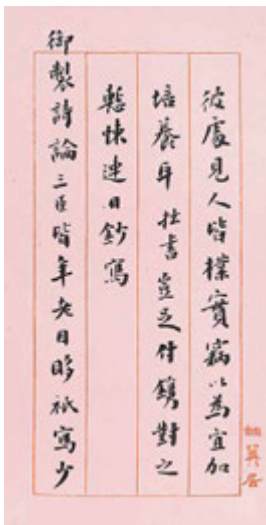 彼處見人皆樸實竊以為宜加
培養耳拙書豈足付鐫對之
慙悚連日鈔寫
御製詩論三臣皆年老目眵祇寫少